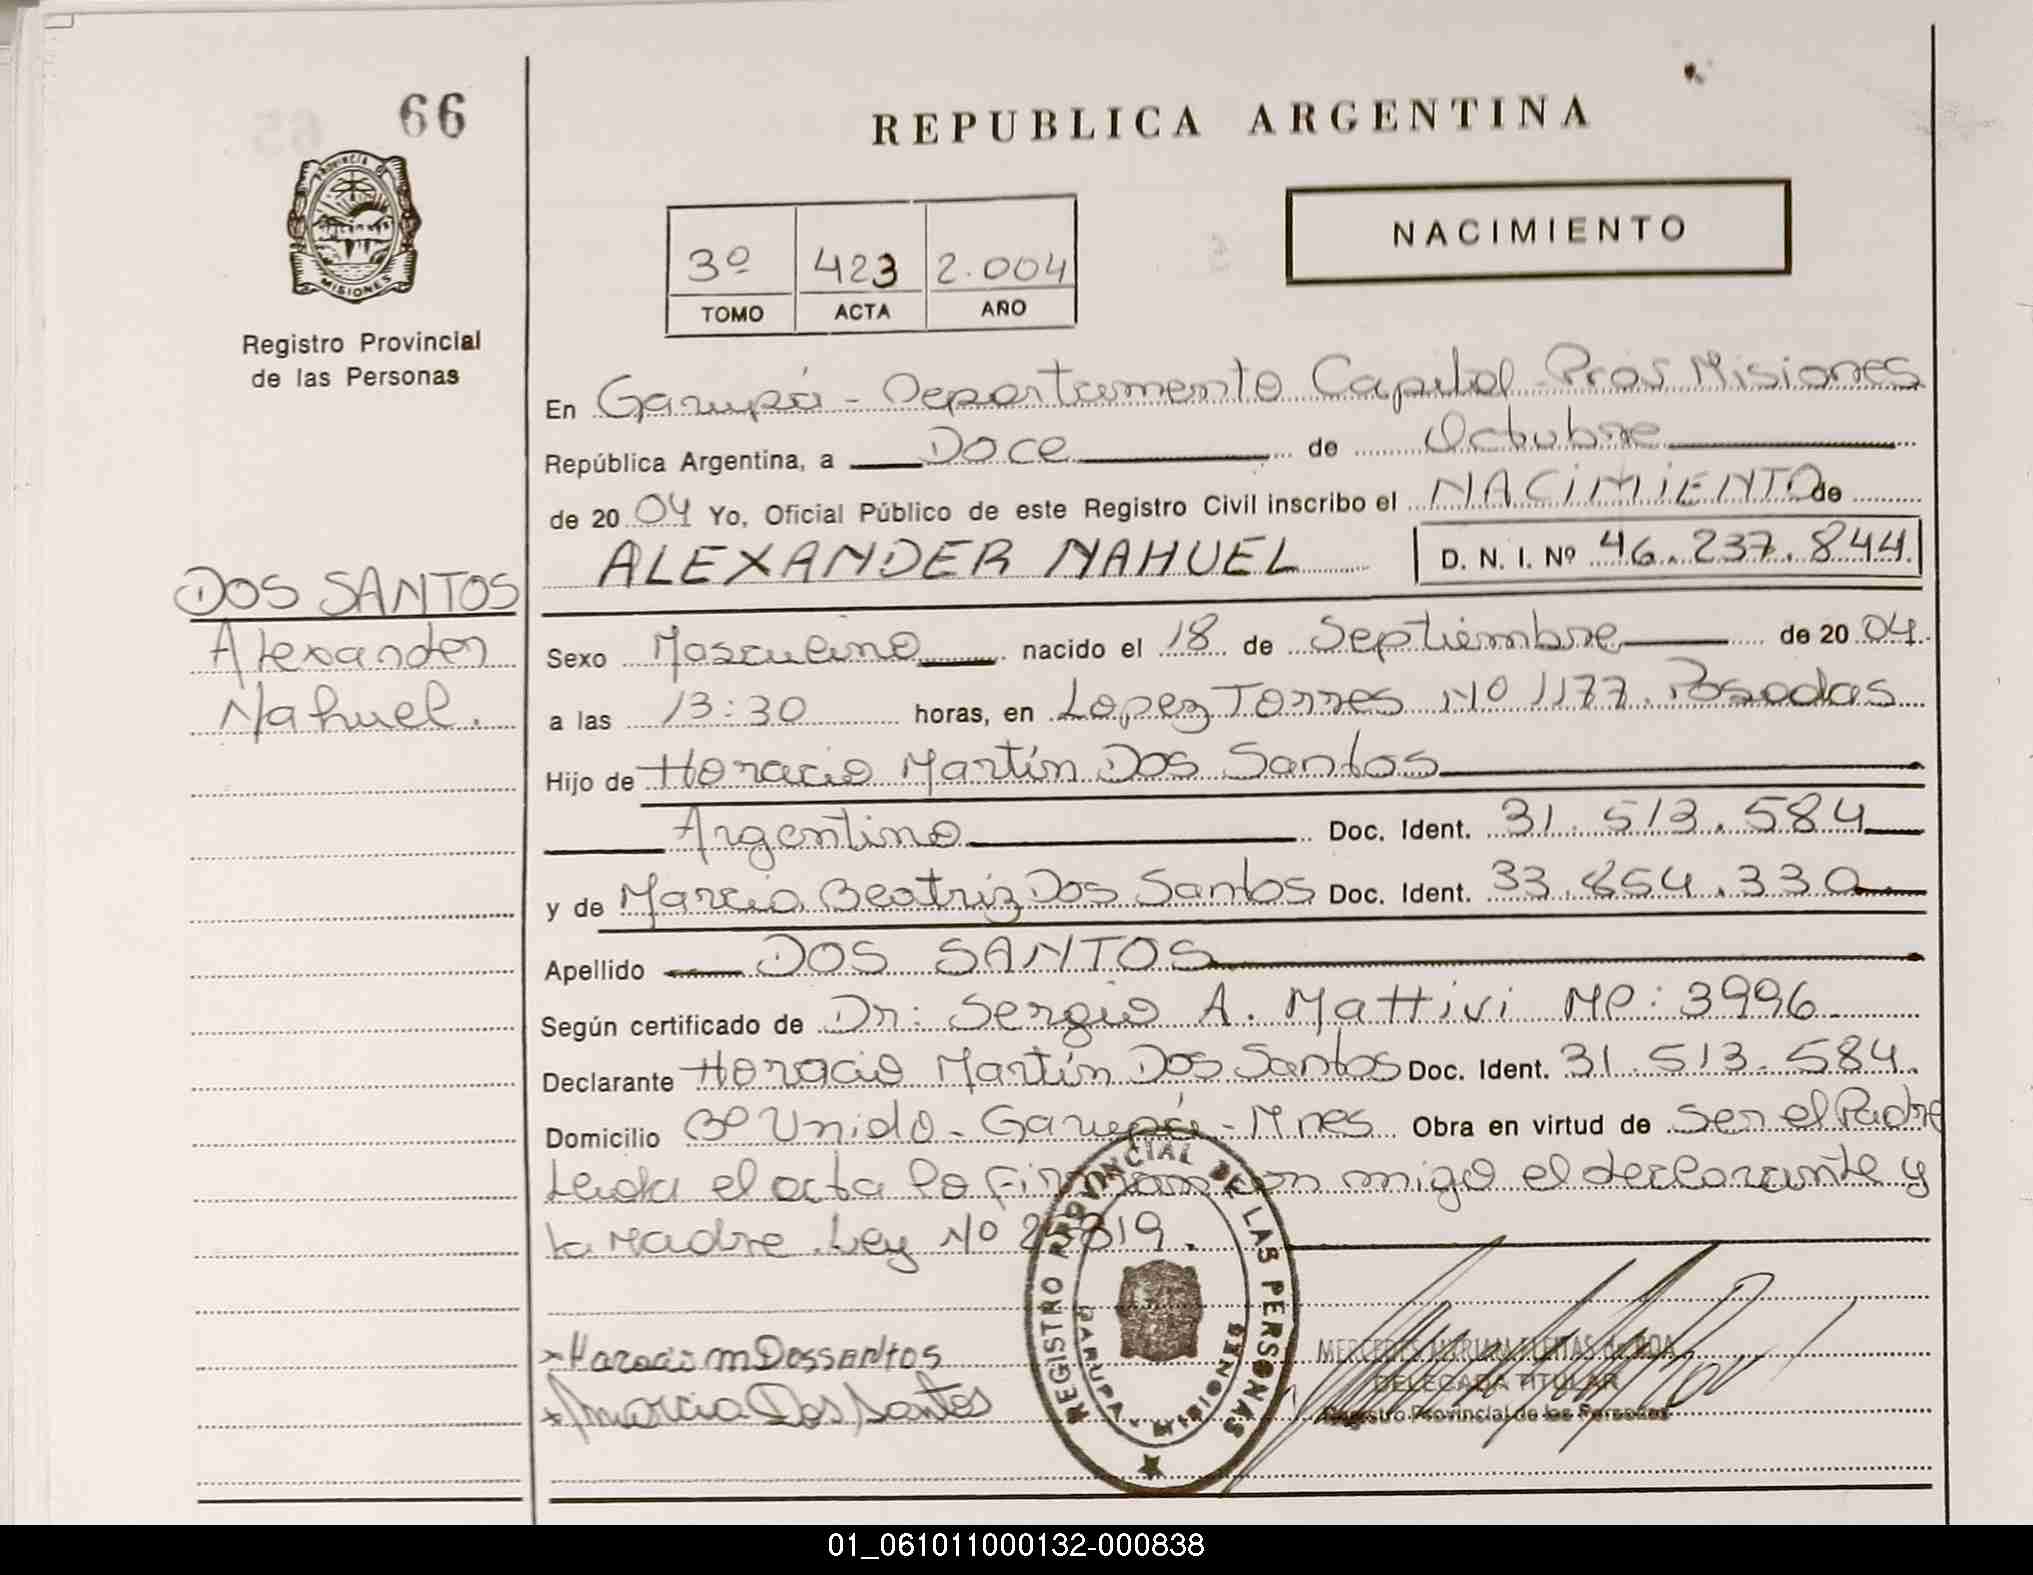 66
PROVINCIA DE
MISIONES
Registro Provincial
de las Personas
REPUBLICA ARGENTINA
NACIMIENTO
3º 423 2.004
TOMO ACTA AÑO
En Garupá - Departamento Capital - Prov Misiones
República Argentina, a Doce de Octubre
de 2004 Yo, Oficial Público de este Registro Civil inscribo el NACIMIENTO de
ALEXANDER NAHUEL D. N. I. Nº 46.237.844
DOS SANTOS
Alexander
Nahuel.
Sexo Masculino nacido el 18 de Septiembre de 2004.
a las 13:30 horas, en Lopez Torres Nº 1177. Posadas
Hijo de Horacio Martín Dos Santos
Argentino Doc. Ident. 31.513.584
y de Marcia Beatriz Dos Santos Doc. Ident. 33.854.330
Apellido DOS SANTOS
Según certificado de Dr: Sergio A. Mattivi MP: 3996
Declarante Horacio Martín Dos Santos Doc. Ident. 31.513.584.
Domicilio Bº Unido - Garupá - Mnes Obra en virtud de ser el Padre
Leida el acta la firman con migo el declarante y
la Madre. Ley Nº 25819.
REGISTRO PROVINCIAL DE LAS PERSONAS
GARUPA - MISIONES
Horacio m Dossantos
Marcia Dos Santos
MERCEDES MIRIAM FLEITAS de ROA
DELEGADA TITULAR
Registro Provincial de las Personas
01_061011000132-000838